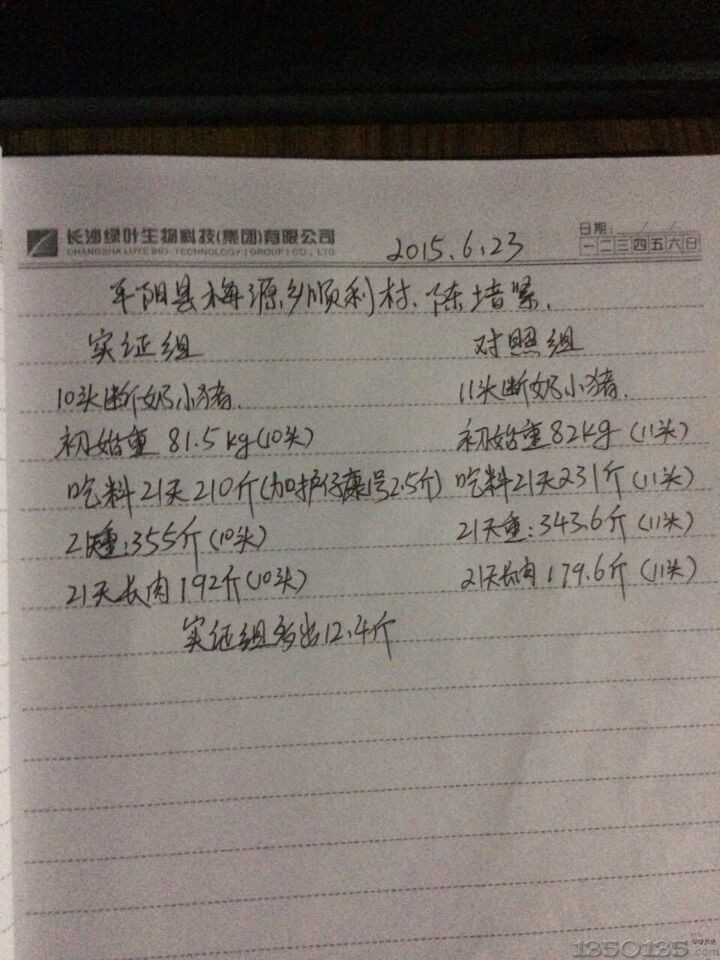 长沙绿叶生物科技(集团)有限公司
CHANGSHA LUYE BIO-TECHNOLOGY (GROUP) CO., LTD
2015.6.23
日期:
一二三四五六日
平阳县梅源乡顺利村、陈培紧、
实证组 对照组
10头断奶小猪. 11头断奶小猪.
初始重81.5kg(10头) 初始重82kg(11头)
吃料21天210斤(加护仔康1号2.5斤) 吃料21天231斤(11头)
21天重:355斤(10头) 21天重:343.6斤(11头)
21天长肉192斤(10头) 21天长肉179.6斤(11头)
实证组多出12.4斤
1350135
.com